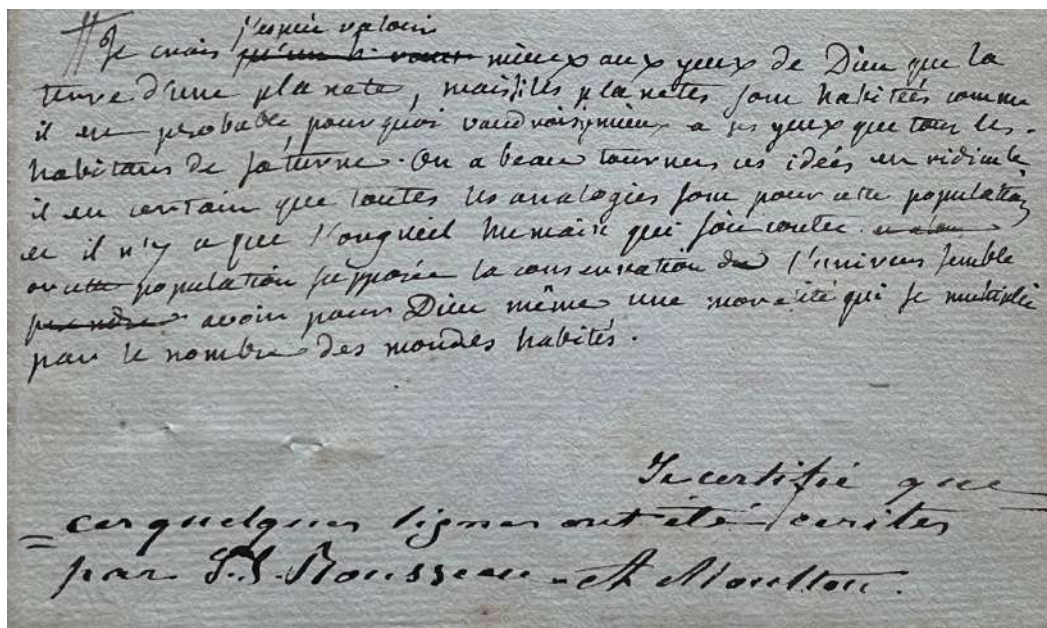 j'espère valoir
Je crois mieux aux yeux de Dieu que la
terre d'une planete, mais si les planetes sont habitées comme
il est probable, pourquoi vaudrois-je mieux a ses yeux que tous les
habitans de saturne. On a beau tourner ces idées en ridicule
il est certain que toutes les analogies sont pour cette population,
et il n'y a que l'orgueil humain qui soit contre.
or cette population supposée la conservation de l'univers semble
avoir pour Dieu même une moralité qui se multiplie
par le nombre des mondes habités.
Je certifie que
ces quelques lignes ont été écrites
par J. J. Rousseau - A Moultou.